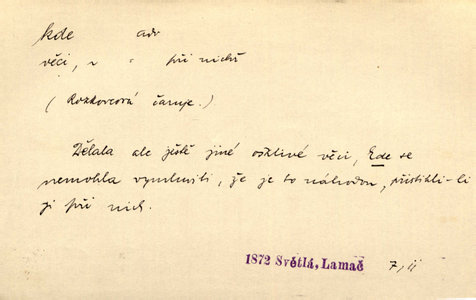 kde adv
věci, при nichž
(Rozkovcová čaruje.)
Dělala ale ještě jiné ošklivé věci, kde se
nemohla vymluviti, že je to náhodou, přistihli-li
ji při nich.
1872 Světlá, Lamač 7, II